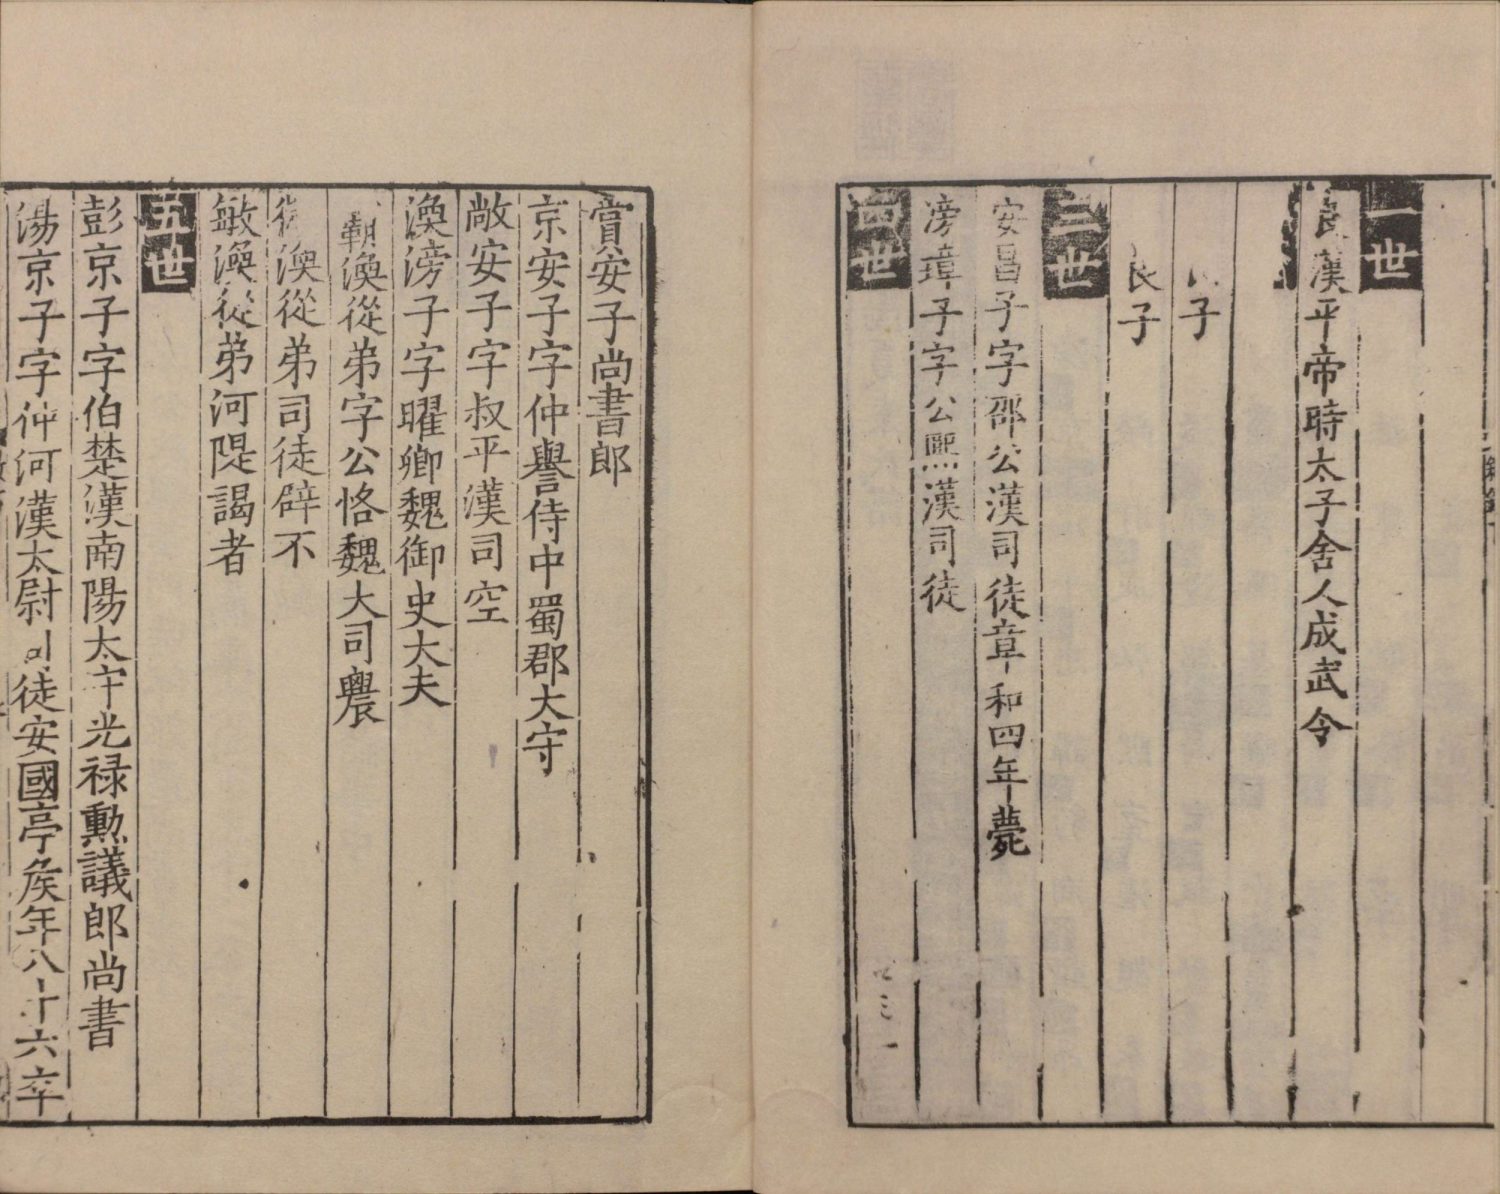 一世
良漢平帝時太子舍人成武令
子
良子
三世
安昌子字邵公漢司徒章和四年薨
滂璋子字公熙漢司徒
四世
賞安子尚書郎
京安子字仲譽侍中蜀郡大守
敞安子字叔平漢司空
渙滂子字曜卿魏御史大夫
霸渙從弟字公恪魏大司農
徽渙從弟司徒辟不
敏渙從弟河隄謁者
五世
彭京子字伯楚漢南陽太守光禄勲議郎尚書
湯京子字仲河漢太尉司徒安國亭侯年八十六卒